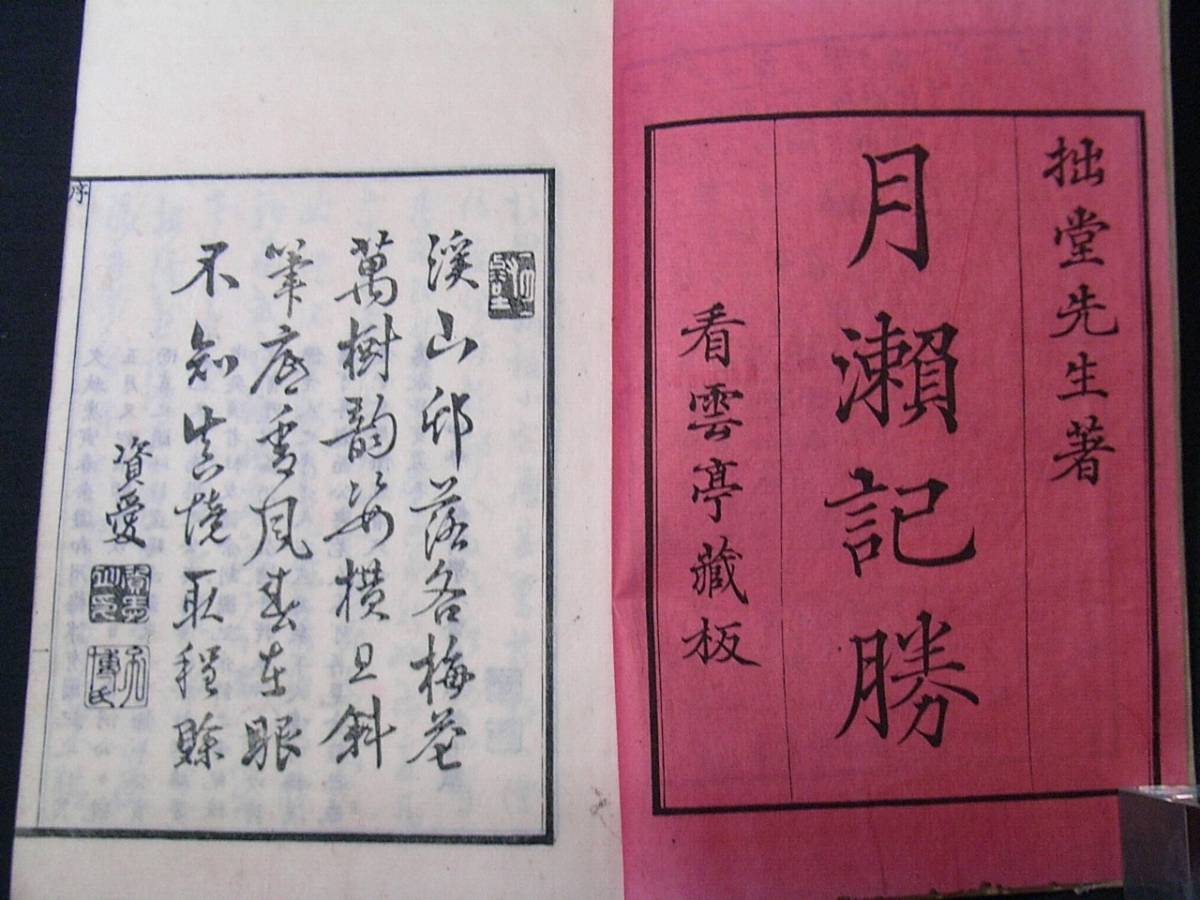 拙堂先生著
月瀬記勝
看雲亭藏板
溪山邨落各梅花
萬樹韵姿横且斜
筆底香風春在眼
不知真境取程賒
資愛
序